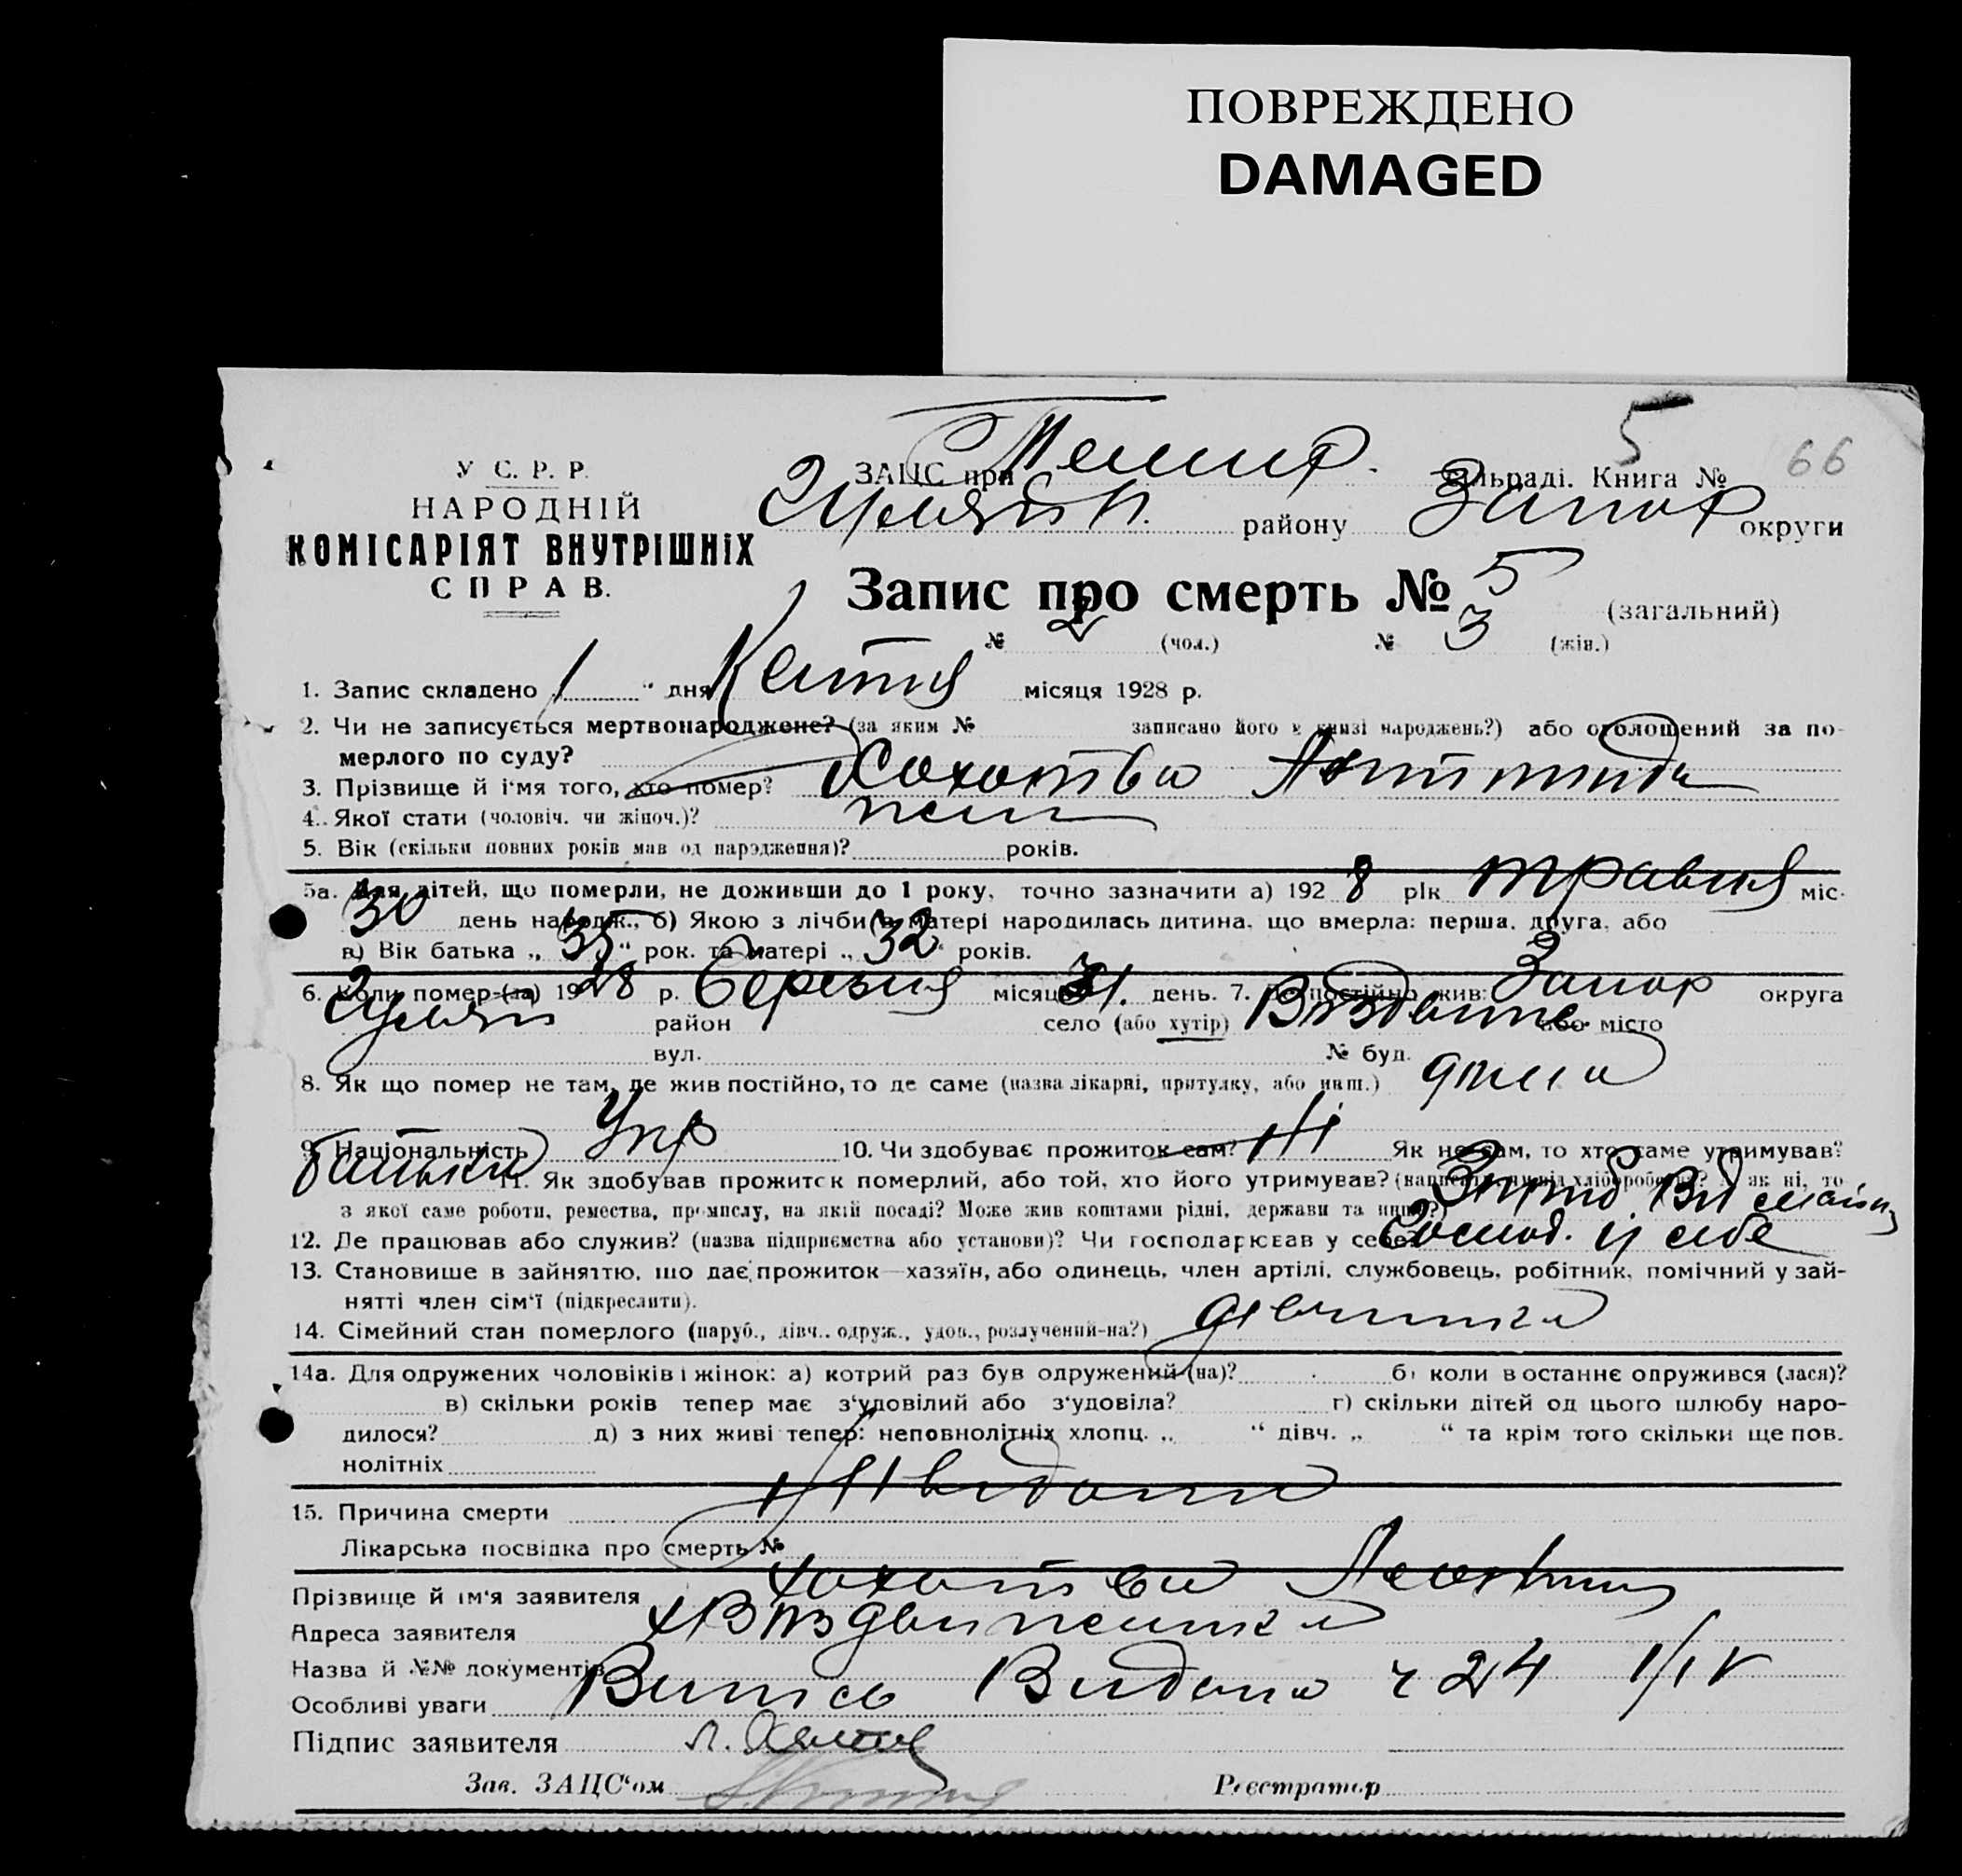 ПОВРЕЖДЕНО
DAMAGED
5
66
У С. Р. Р.
НАРОДНІЙ
КОМІСАРІЯТ ВНУТРІШНІХ
СПРАВ.
ЗАЦС при Темир. сільраді. Книга №
району Запор округи
Запис про смерть № 5 (загальний)
№ 2 (чол.) № 3 (жін.)
1. Запис складено 1 " дня Квітня місяця 1928 р.
2. Чи не записується мертвонароджене? (за яким № записано його в книзі народжень?) або оголошений за по-
мерлого по суду?
3. Прізвище й ім'я того, хто помер? Хохотва
4. Якої стати (чоловіч. чи жіноч.)? жен
5. Вік (скільки повних років мав од народження)? років.
5а. Для дітей, що померли, не доживши до 1 року, точно зазначити а) 192 8 рік травня міс.
30 день народж., б) Якою з лічби в матері народилась дитина, що вмерла: перша, друга, або
в) Вік батька „ 35 “ рок. та матері „ 32 “ років.
6. Коли помер-(ла) 19 28 р. Березня місяця 31. день. 7. Де постійно жив: Запор округа
район село (або хутір) або місто
вул. № буд.
8. Як що помер не там, де жив постійно, то де саме (назва лікарні, притулку, або инш.) дома
9. Національність Укр 10. Чи здобуває прожиток сам? Ні Як не сам, то хто саме утримував?
батьки
11. Як здобував прожиток померлий, або той, хто його утримував? (написати, чи від хліборобства? як ні, то
з якої саме роботи, ремества, промислу, на якій посаді? Може жив коштами рідні, держави та инш?)
12. Де працював або служив? (назва підприємства або установи)? Чи господарював у себе? Господ. у себе
13. Становище в зайняттю, що дає прожиток—хазяїн, або одинець, член артілі, службовець, робітник, помічний у зай-
нятті член сім'ї (підкреслити).
14. Сімейний стан померлого (паруб., дівч., одруж., удов., розлучений-на?) дівчинка
14а. Для одружених чоловіків і жінок: а) котрий раз був одружений (на)? б) коли в останнє одружився (лася)?
в) скільки років тепер має з'удовілий або з'удовіла? г) скільки дітей од цього шлюбу наро-
дилося? д) з них живі тепер: неповнолітніх хлопц. „ “ дівч. „ “ та крім того скільки ще пов.
нолітніх
15. Причина смерти Невідома
Лікарська посвідка про смерть №
Прізвище й ім'я заявителя Хохотва
Адреса заявителя х Воздвиженка
Назва й №№ документів
Особливі уваги Випись Видана ч 24 1/IV
Підпис заявителя
Зав. ЗАЦС'ом Реєстратор